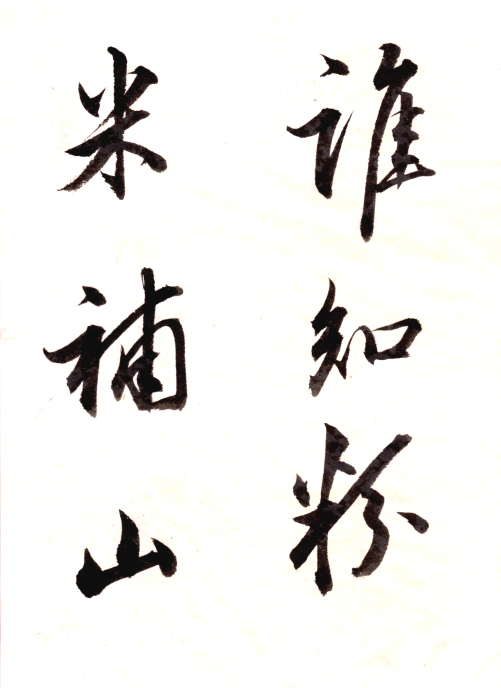 谁知粉
米補山